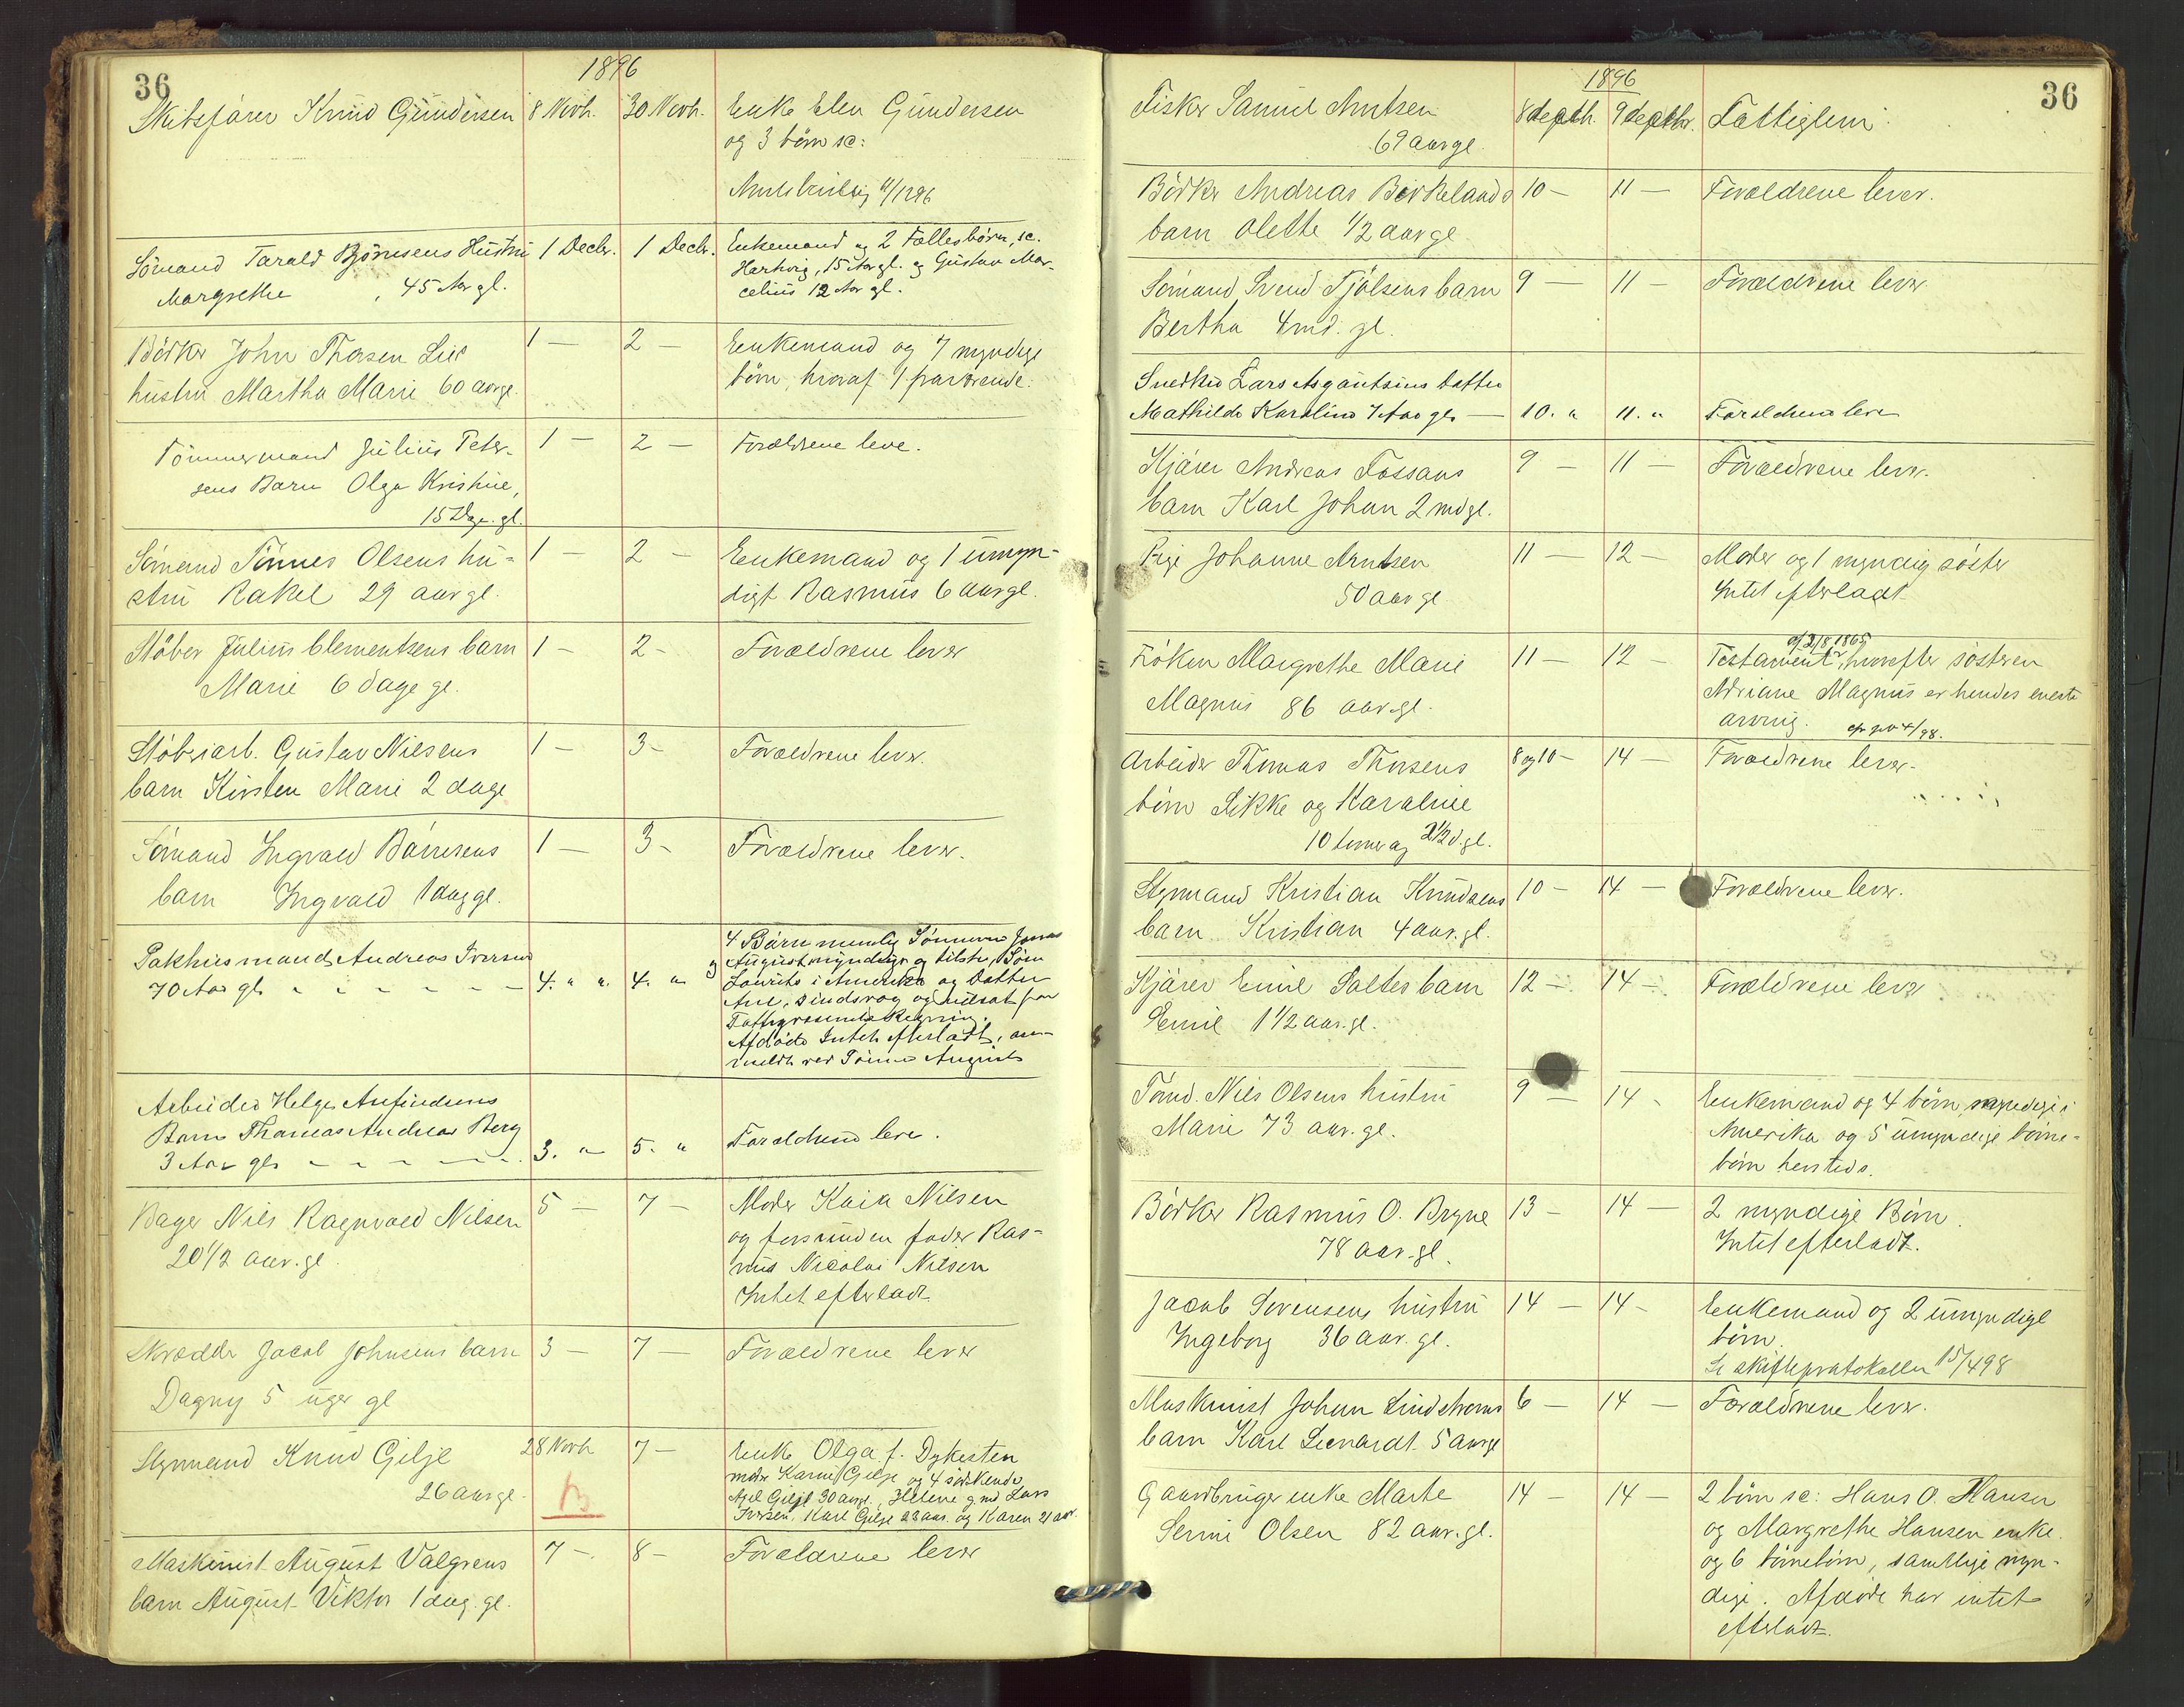 36
1896
Skibsfører Knud Gundersen 8 Novb. 30 Novb. Enke Elen Gundersen
og 3 børn sc:
Sømand Tarald Bjørnsens Hustru 1 Decbr. 1 Decbr. Enkemand og 2 Fællesbørn, sc.
Margrethe , 45 Aar gl. Hartvig, 15 Aar gl. og Gustav Mar-
celius 12 Aar gl.
Bødker John Thorsen Lies 1 — 2 — Enkemand og 7 myndige
hustru Martha Marie 60 aar gl. børn, hvoraf 1 fraværende.
Tømmermand Julius Peter- 1 — 2 — Forældrene leve.
sens Barn Olga Kristine,
15 Dage gl.
Sømand Tønnes Olsens hu- 1 — 2 — Enkemand og 1 umyn-
stru Rakel 29 aar gl. digt Rasmus 6 aar gl.
Støber Julius Clementsens barn 1 — 2 — Forældrene lever
Marie 6 dage gl.
Støberiarb. Gustav Nilsens 1 — 3 — Forældrene lever.
barn Kirsten Marie 2 dage
Sømand Ingvald Bårresens 1 — 3 — Forældrene lever.
barn Ingvald 1 dag gl.
Pakhusmand Andreas Iversen 4 Børn nemlig Sønnerne Jonas
70 Aar gl. 4. " 4. " og August myndige og tilste, Søn
Laurits i Amerika og Datter
Ane, sindsvag og udsat for
Fattigvæsenets Regning.
Afdøde Intet efterladt, an-
meldt ved Sønnen August
Arbeider Helge Anfindsens
Barn Thomas Andreas Berg
3 Aar gl. 3. " 5. " Forældrene leve.
Bager Nils Ragnvald Nilsen 5 — 7 — Moder Kaia Nilsen
20 1/2 aar. gl. og forsvunden fader Ras-
mus Nicolai Nilsen
Intet efterladt
Skrædder Jacob Johnsens barn 3 — 7 — Forældrene lever
Dagny 5 uger gl
Styrmand Knud Gilje 28 Novb 7 — Enke Olga f. Dykesten
26 aar gl. moder Karen Gilje og 4 søskende
Axel Gilje 30 aar gl., Helene g. md Lars
Iversen, Karl Gilje 23 aar. og Karen 21 aar.
Maskinist August Valgrens 7 — 8 — Forældrene lever
barn August Viktor 1 dag. gl.
36
1896
Fisker Samuel Arntsen 8 decbr. 9 decbr. Fattiglem
69 aar gl.
Bødker Andreas Birkelands 10 — 11 — Forældrene lever.
barn Olette 1/2 aar gl
Sømand Svend Tjølsens barn 9 — 11 — Forældrene lever
Bertha 4 md. gl.
Snedker Lars Asgautsens datter
Mathilde Karoline 7 Aar gl. — 10. " 11. " Forældrene leve
Kjører Andreas Fossans 9 — 11 — Forældrene lever.
barn Karl Johan 2 md gl.
Pige Johanne Arntsen 11 — 12 — Moder og 1 myndig søster
50 aar gl Intet efterladt
Frøken Margrethe Marie 11 — 12 — Testament af 2/8 1865, hvorefter søsteren
Magnus 86 aar. gl. Adriane Magnus er hendes eneste
arving.
Arbeider Thomas Thorsens 8 og 10 — 14 — Forældrene lever.
børn Sikke og Karoline
10 timer og 2 1/2 d. gl.
Styrmand Kristian Knudsens 10 — 14 — Forældrene lever.
barn Kristian 4 aar. gl.
Kjører Emil Saltes barn 12 — 14 — Forældrene lever
Emil 1 1/2 aar. gl.
Tømd. Nils Olsens hustru 9 — 14 — Enkemand og 4 børn, myndige i
Marie 73 aar. gl. Amerika og 5 umyndige børne-
børn hersteds.
Bødker Rasmus O. Bryne 13 — 14 — 2 myndige Børn.
78 aar. gl. Intet efterladt.
Jacob Sørensens hustru 14 — 14 — Enkemand og 2 umyndige
Ingeborg 36 aar. gl. børn.
Se skifteprotokollen 15/4 98
Maskinist Johan Lindstrøms 6 — 14 — Forældrene lever.
barn Karl Leonardt 5 aar gl
Gaardbruger enke Marte 14 — 14 — 2 børn sc: Hans O. Hansen
Serine Olsen 82 aar. gl. og Margrethe Hansen enke.
og 6 børnebørn, samtlige myn-
dige. Afdøde har intet
efterladt.